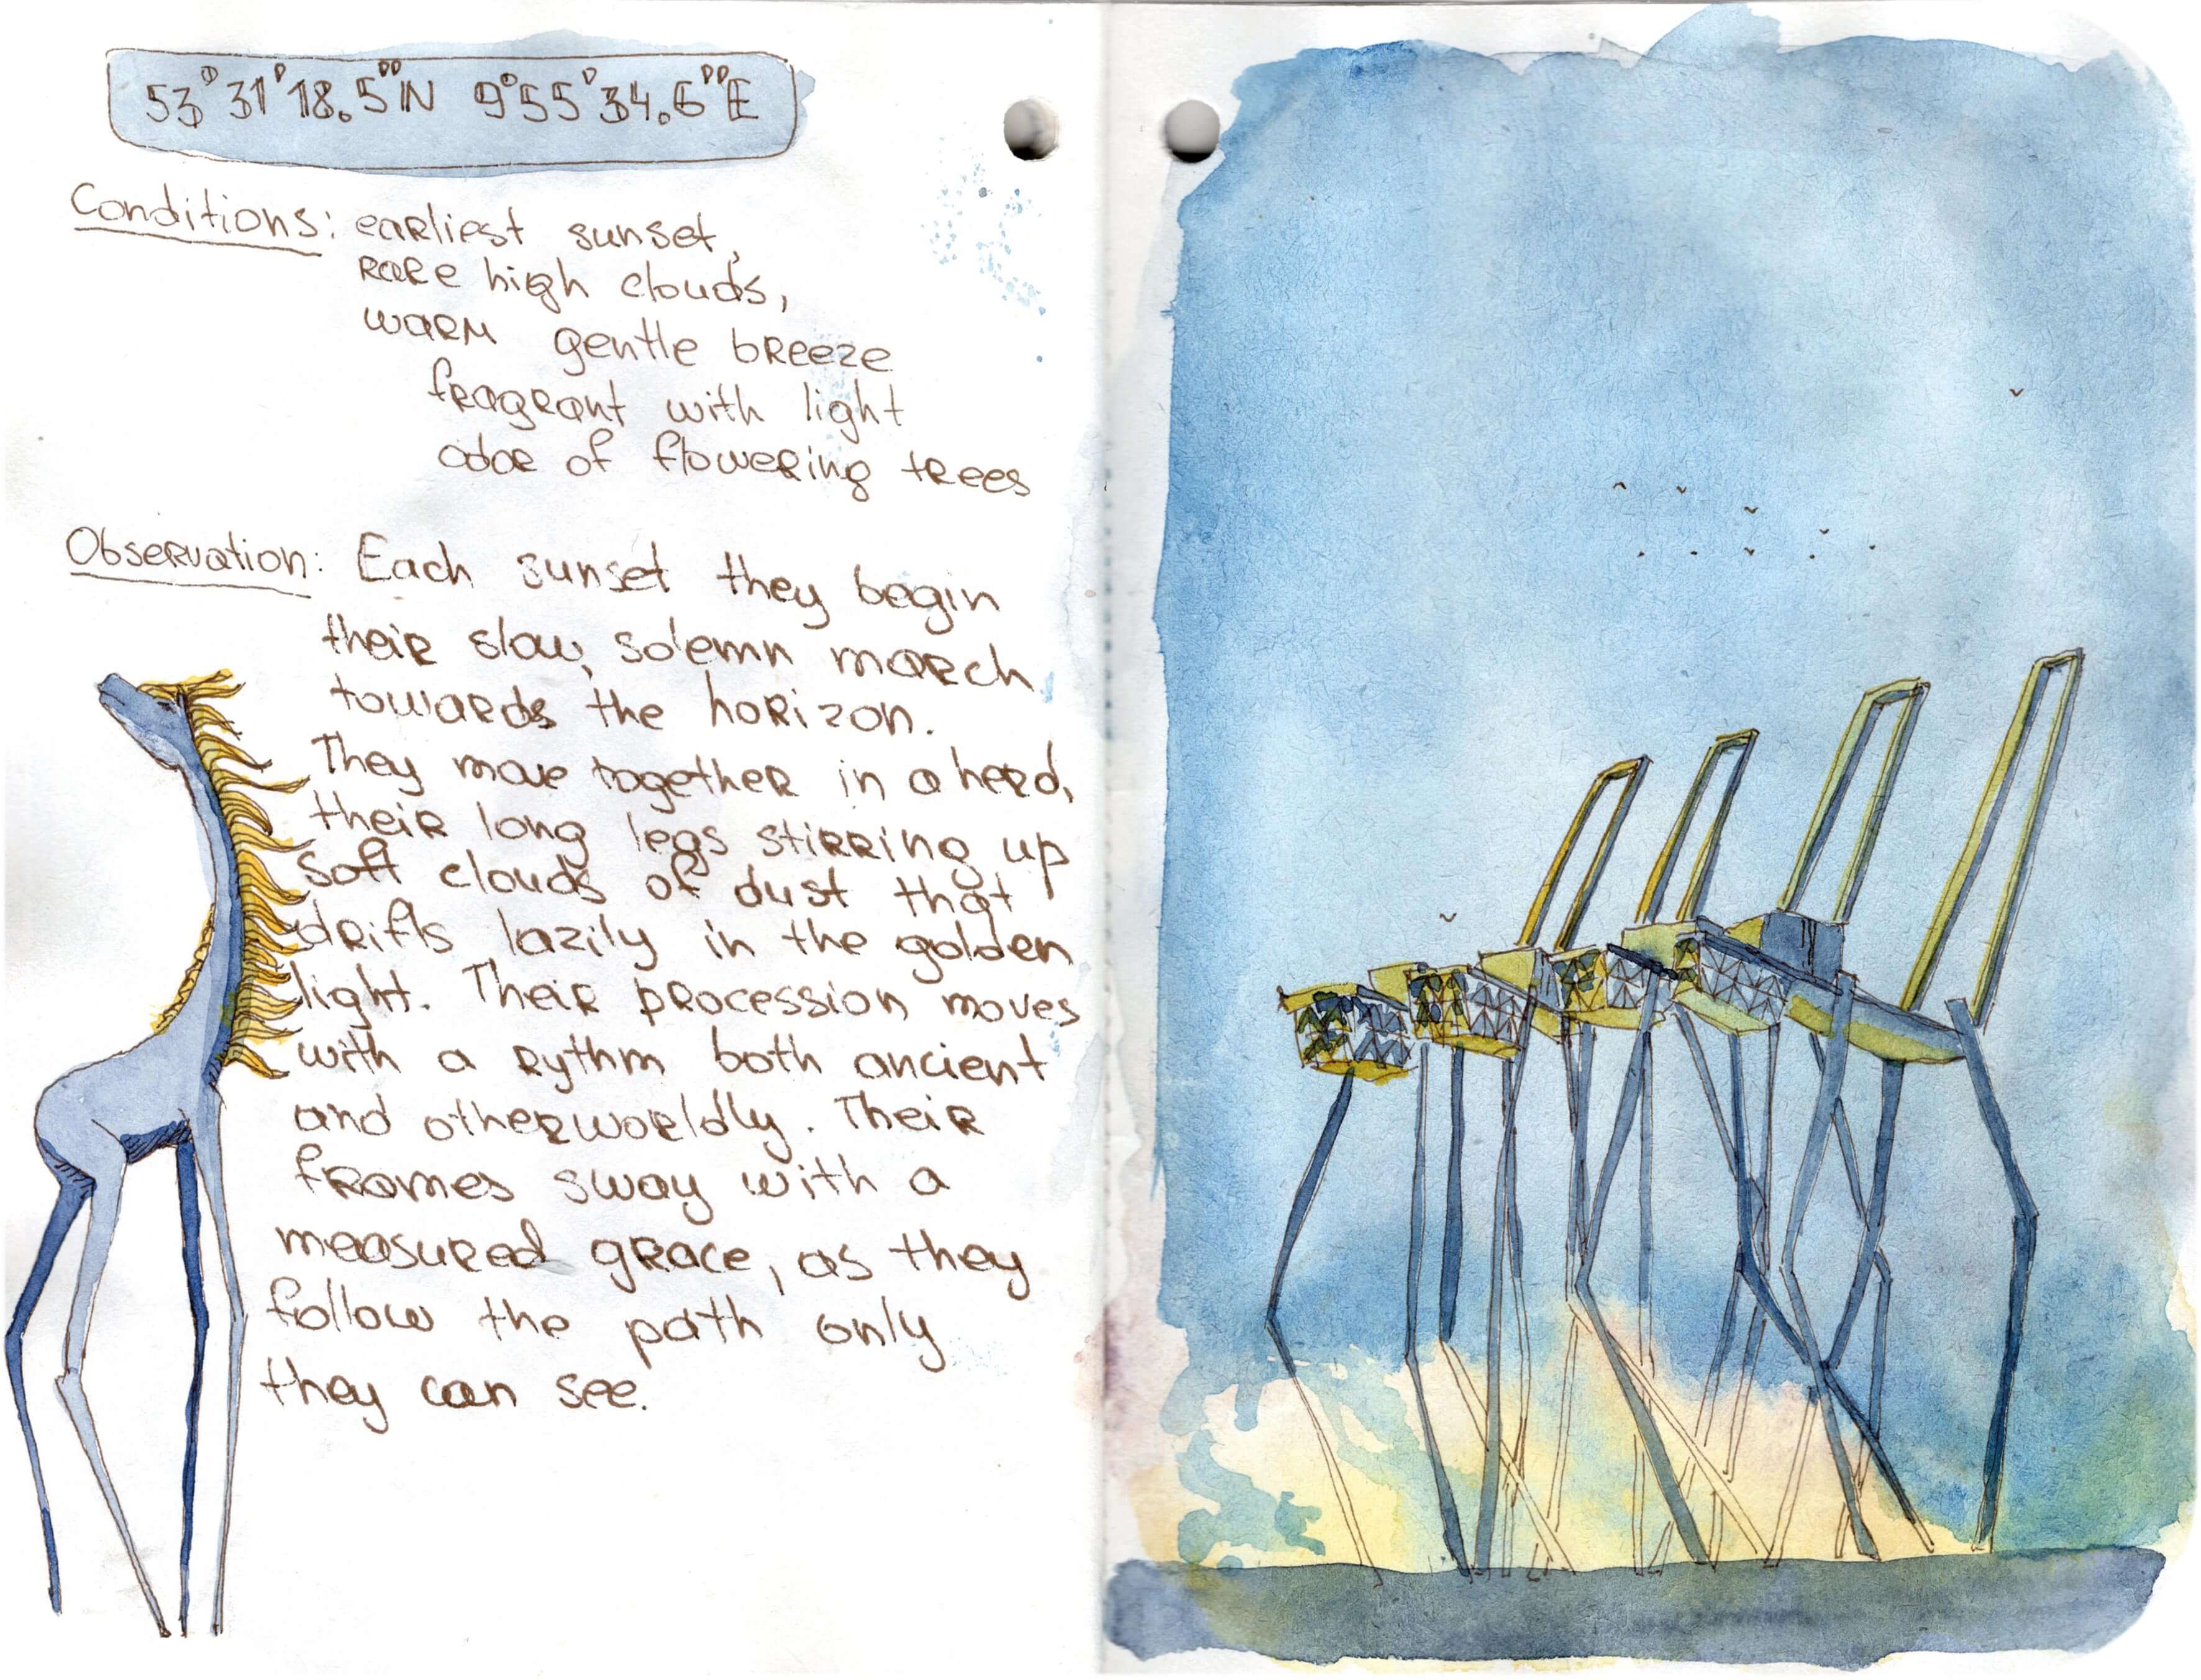 53°31'18.5"N 9°55'34.6"E
Conditions: earliest sunset,
rare high clouds,
warm gentle breeze
fragrant with light
odor of flowering trees
Observation: Each sunset they begin
their slow, solemn march
towards the horizon.
They move together in a herd,
their long legs stirring up
soft clouds of dust that
drifts lazily in the golden
light. Their procession moves
with a rythm both ancient
and otherworldly. Their
frames sway with a
measured grace, as they
follow the path only
they can see.